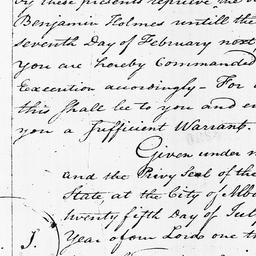 by these presents reprieve the
Benjamin Holmes untill the
seventh Day of February next
you are hereby Commanded
Execution accordingly - For
this shall be to you and
you a sufficient Warrant.
Given under
and the Privy Seal of the
State, at the City of Alba
twenty fifth Day of Jul
Year of our Lord one t
J.